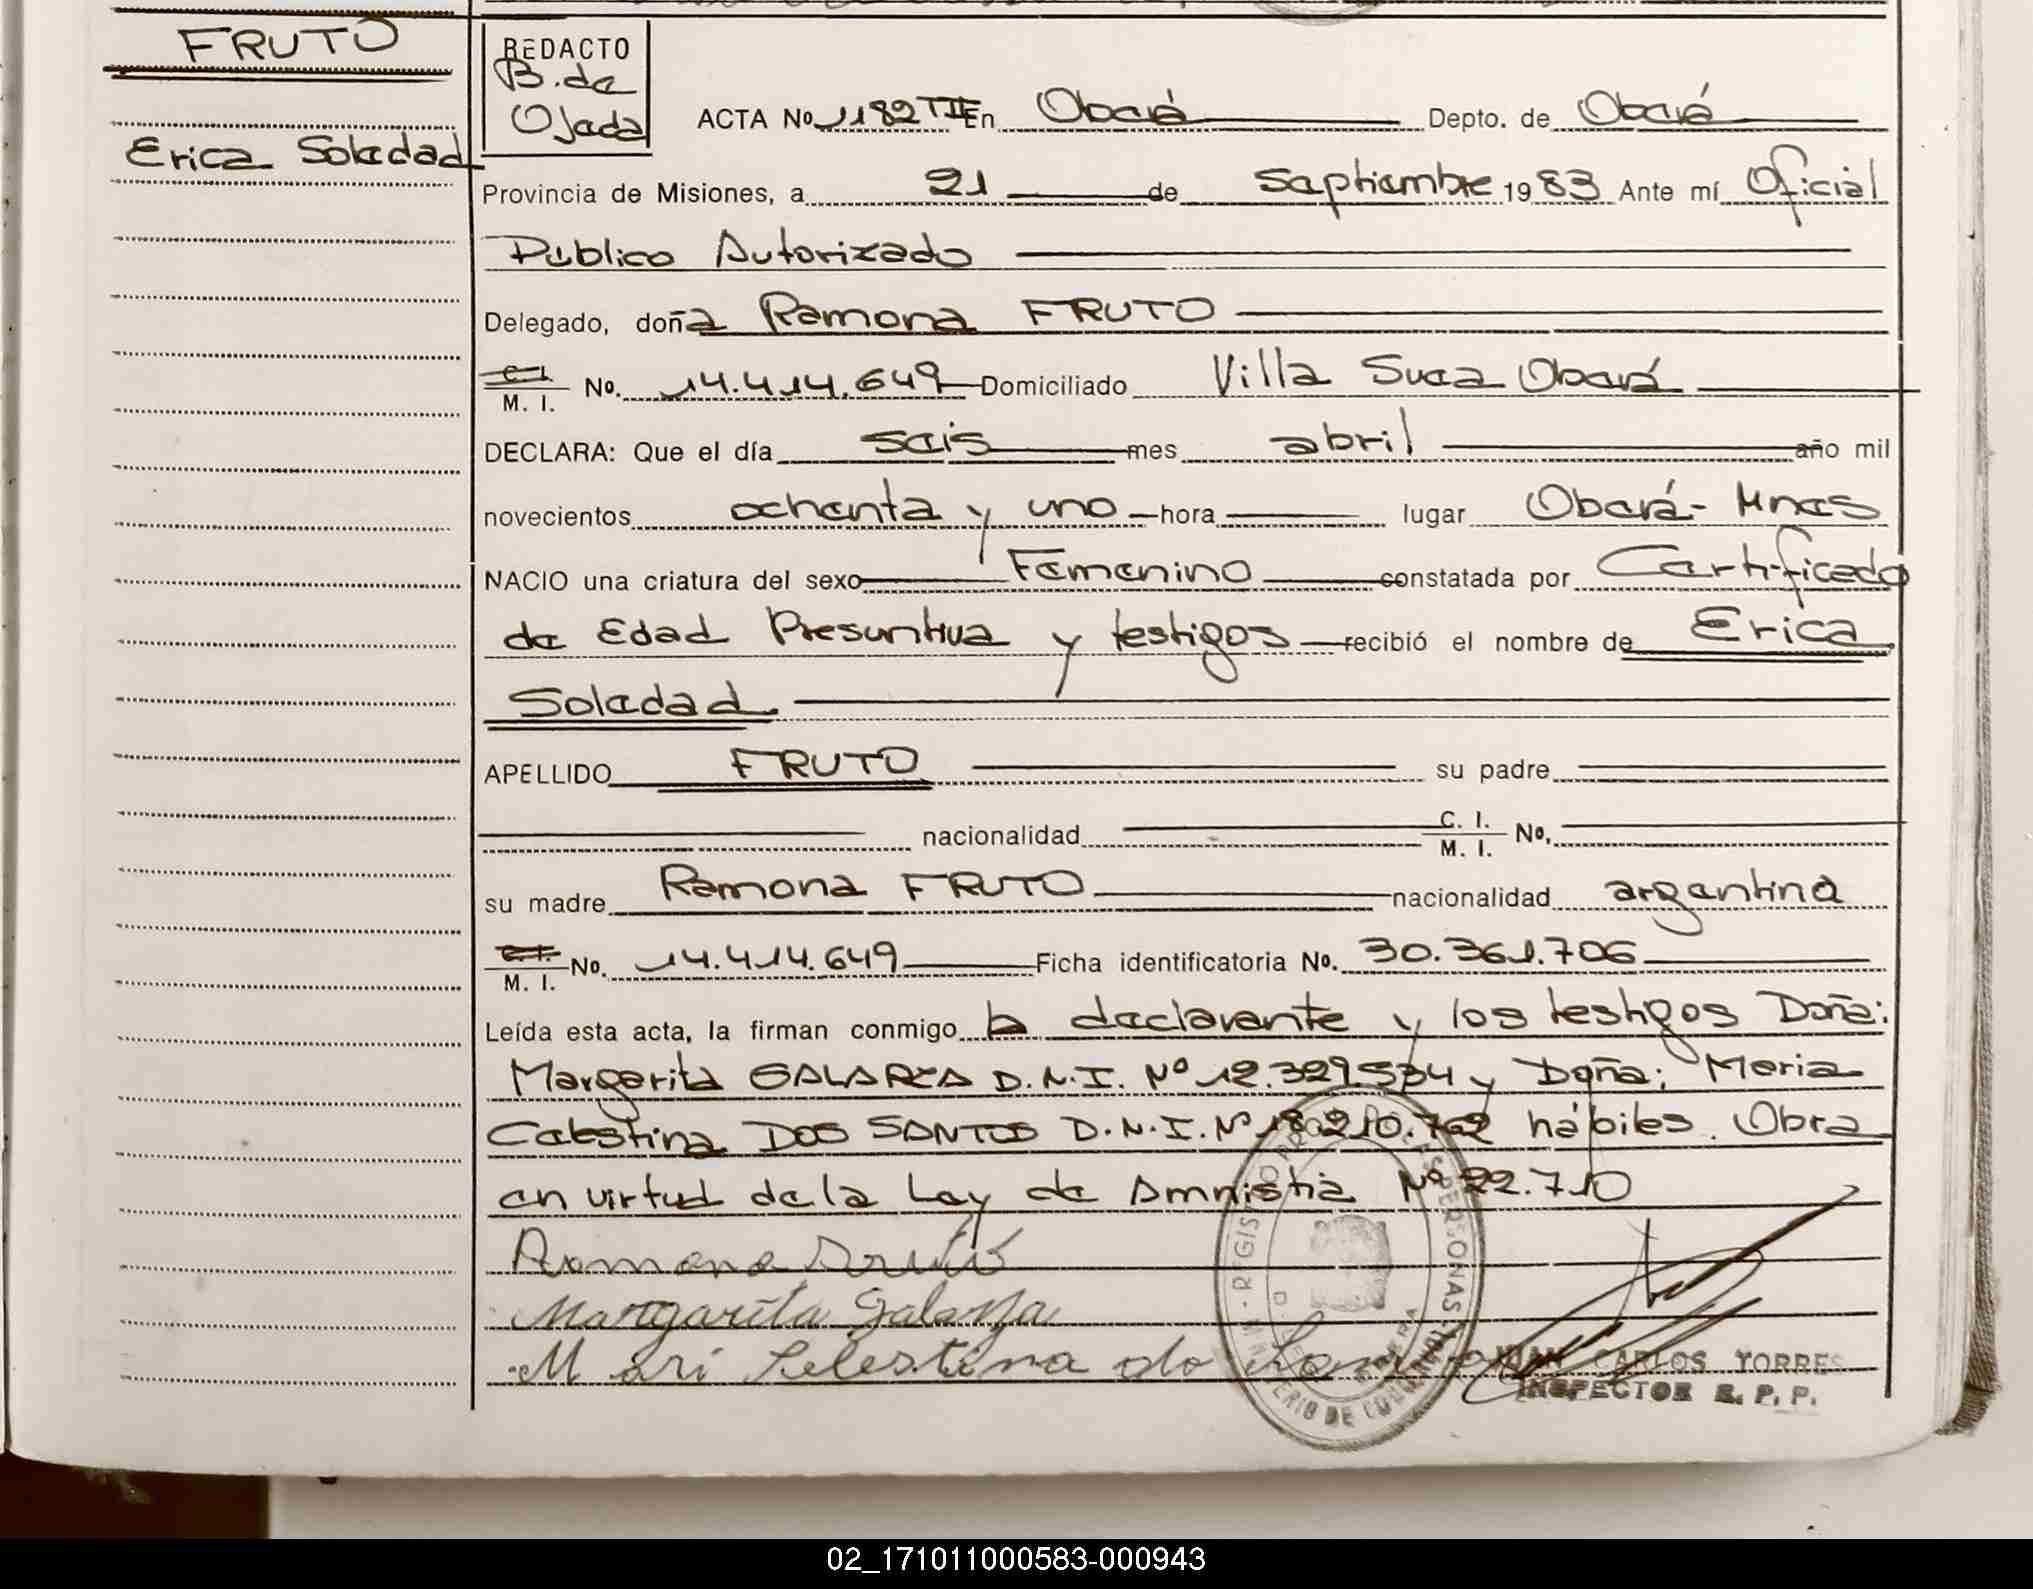 FRUTO
Erica Soledad
REDACTO
B. de
Ojeda
ACTA No. 1182 TII En Oberá Depto. de Oberá
Provincia de Misiones, a 21 de Septiembre 1983 Ante mí Oficial
Publico Autorizado
Delegado, doña Ramona FRUTO
C. I.
M. I. No. 14.414.649 Domiciliado Villa Suca Oberá
DECLARA: Que el día seis mes abril año mil
novecientos ochenta y uno hora lugar Oberá- Mnes
NACIO una criatura del sexo Femenino constatada por Certificado
de Edad Presuntiva y testigos recibió el nombre de Erica
Soledad.
APELLIDO FRUTO su padre
nacionalidad C. I.
M. I. No.
su madre Ramona FRUTO nacionalidad argentina
C. I.
M. I. No. 14.414.649 Ficha identificatoria No. 30.361.706
Leída esta acta, la firman conmigo la declarante y los testigos Doña:
Margarita GALARZA D.N.I. Nº 12.329.534 y Doña: Maria
Celestina DOS SANTOS D.N.I. Nº 18.210.762 hábiles. Obra
en virtud de la Ley de Amnistia Nº 22.710
Ramona Fruto
Margarita Galarza
Mari Selestina do
JUAN CARLOS TORRES
INSPECTOR R. P. P.
02_171011000583-000943